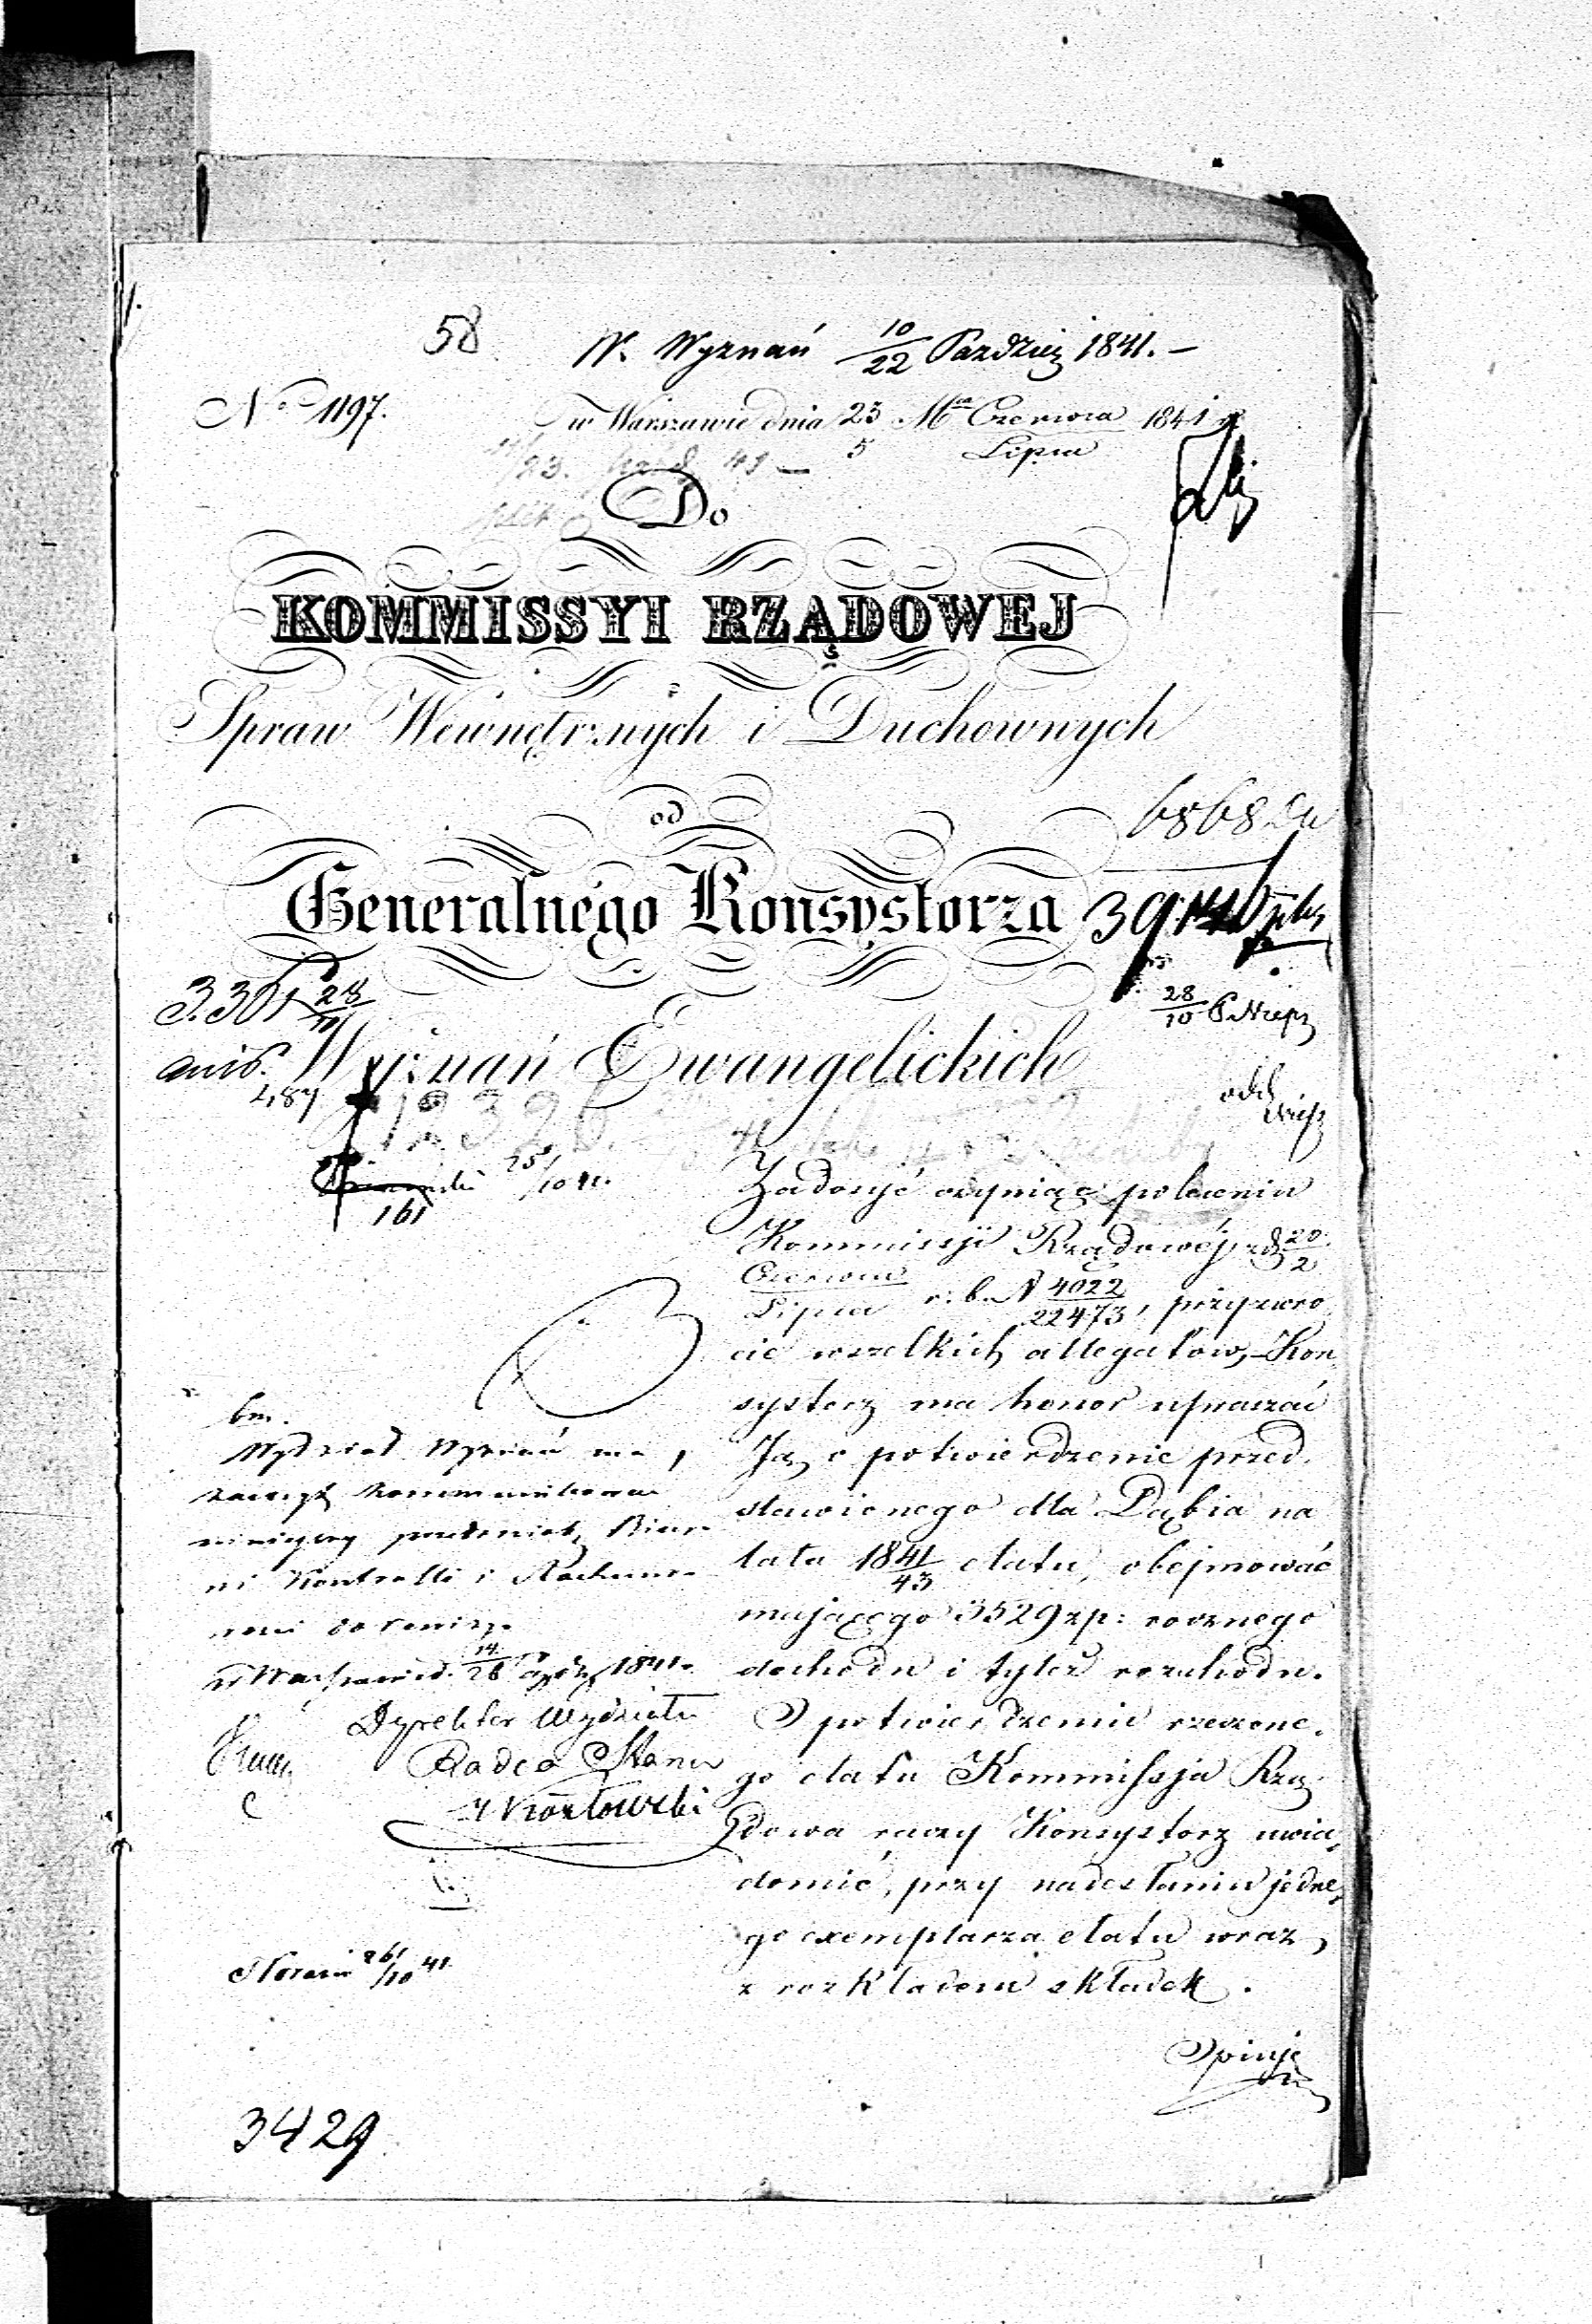 58
W. Wyznań 10/22 Paździer 1841. —
No 1197.
w Warszawie dnia 23 Ma Czerwca 1841 r.
5 Lipca
Do
KOMMISSYI RZĄDOWEJ
Spraw Wewnętrznych i Duchownych
od
6868
Generalnego Konsystorza
28/10
Wyznań Ewangelickich
487
25/10 41.
161
Zadosyć czyniąc poleceniu
Kommissji Rządowéj z d. 20/2
Czerwca/Lipca r: b. N 4022/22473, przy zwro
cie wszelkich allegatów, Kon
systorz ma honor upraszać
Ją o potwierdzenie przed
stawionego dla Dąbia na
lata 1841/43 etatu, obejmować
mającego 3529 zp: rocznego
dochodu i tyleż rozchodu.
O potwierdzeniu rzeczone
go etatu Kommissja Rzą
dowa raczy Konsystorz uwia
domić, przy nadesłaniu jedne
go exemplarza etatu wraz
z rozkładem składek.
Opinję
bm.
Wydział Wyznań ma
zaszczyt kommunikować
niniejszy przedmiot Biu
Kontrolli i Rachun
do rewizji
w Warszawie d. 14/26 1841
Dyrektor Wydziału
Radca Stanu
Kozłowski
26/10 41
3429